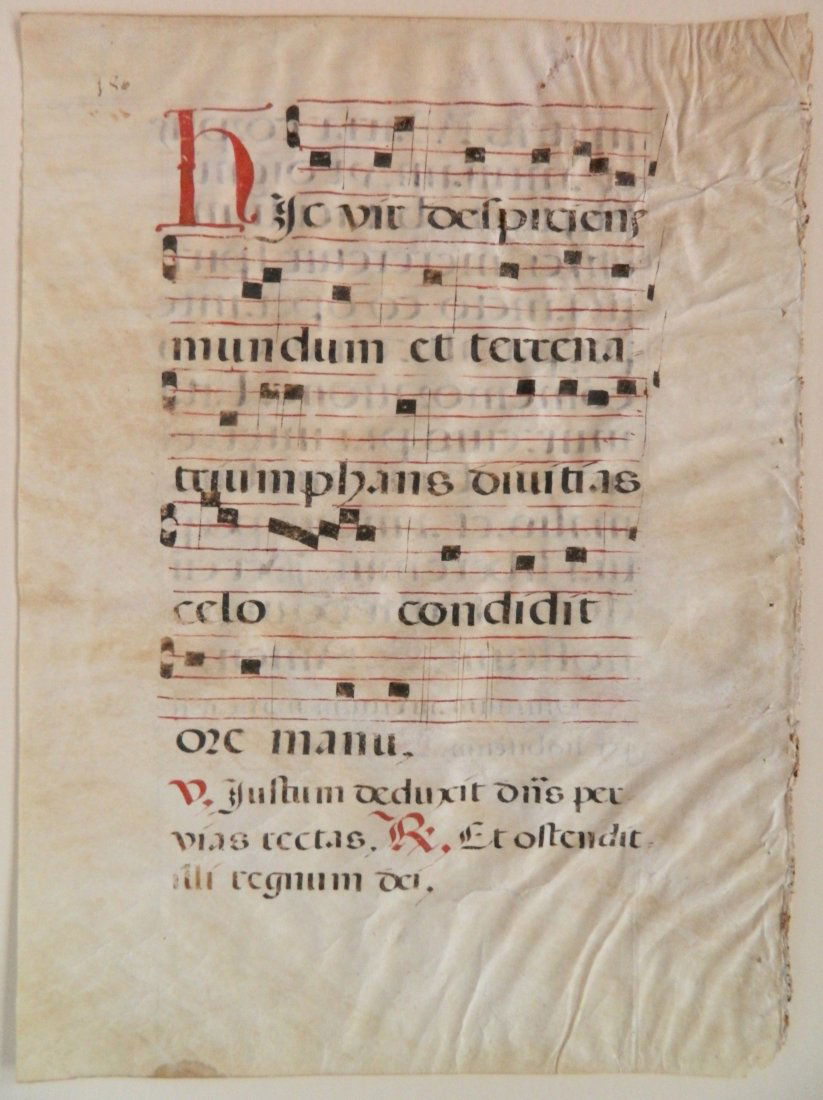 hJc vir despiciens
mundum et terrena
triumphans divitias
celo condidit
ore manu.
V. Justum deduxit dñs per
vias rectas. R. Et ostendit
illi regnum dei.